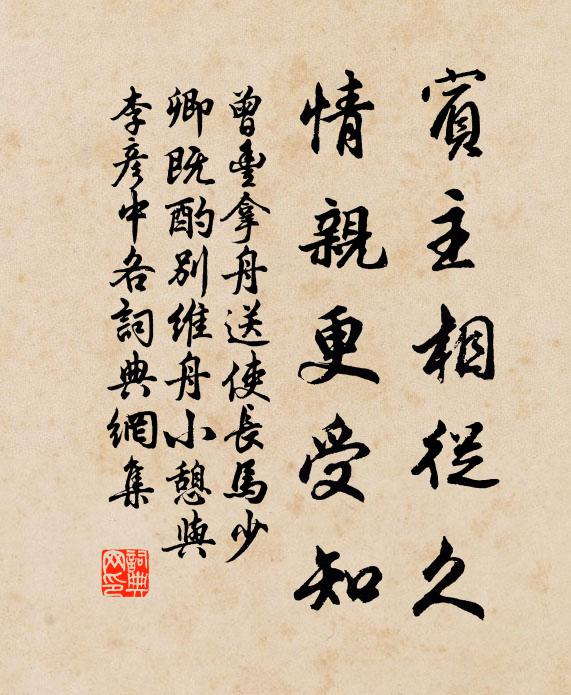 賓主相從久
情親更受知
曾豊拿舟送使長馬少
卿既酌別維舟小憩與
李彥中各詞典網集
詞典
网印